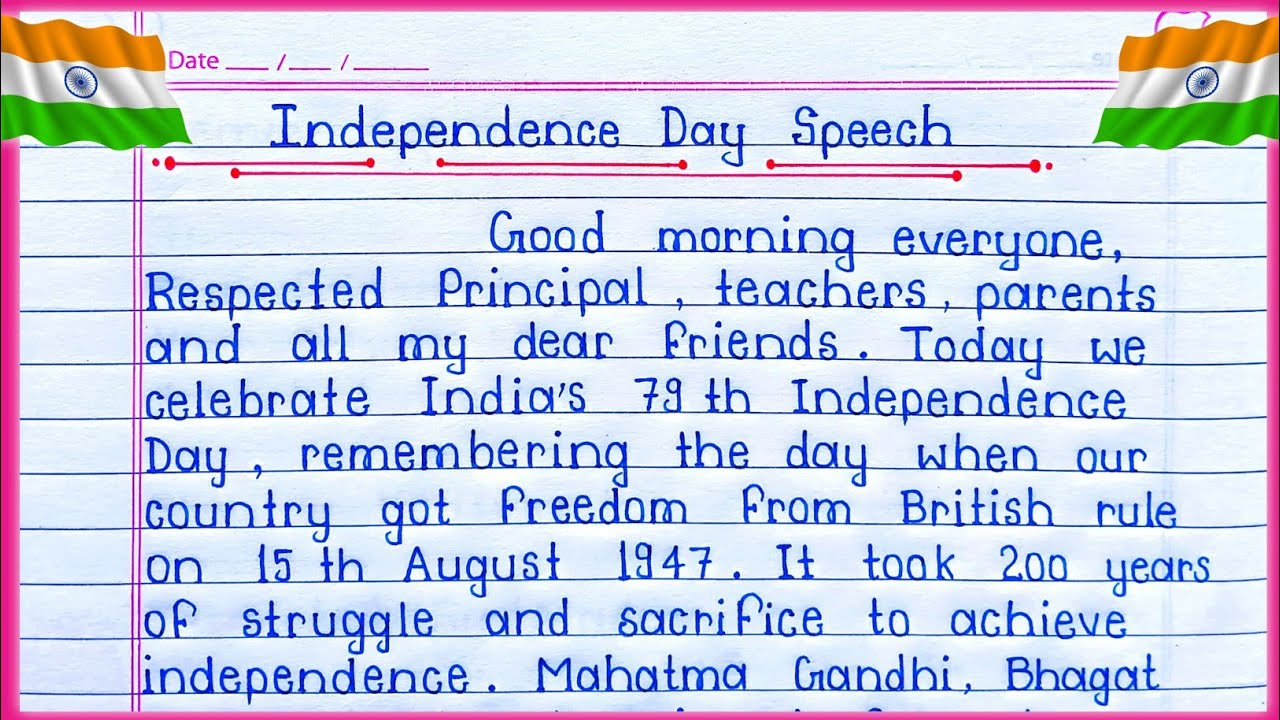 Date ___ /___ /_____
Independence Day Speech
Good morning everyone,
Respected Principal, teachers, parents
and all my dear friends. Today we
celebrate India's 79th Independence
Day, remembering the day when our
country got freedom from British rule
on 15th August 1947. It took 200 years
of struggle and sacrifice to achieve
independence. Mahatma Gandhi, Bhagat